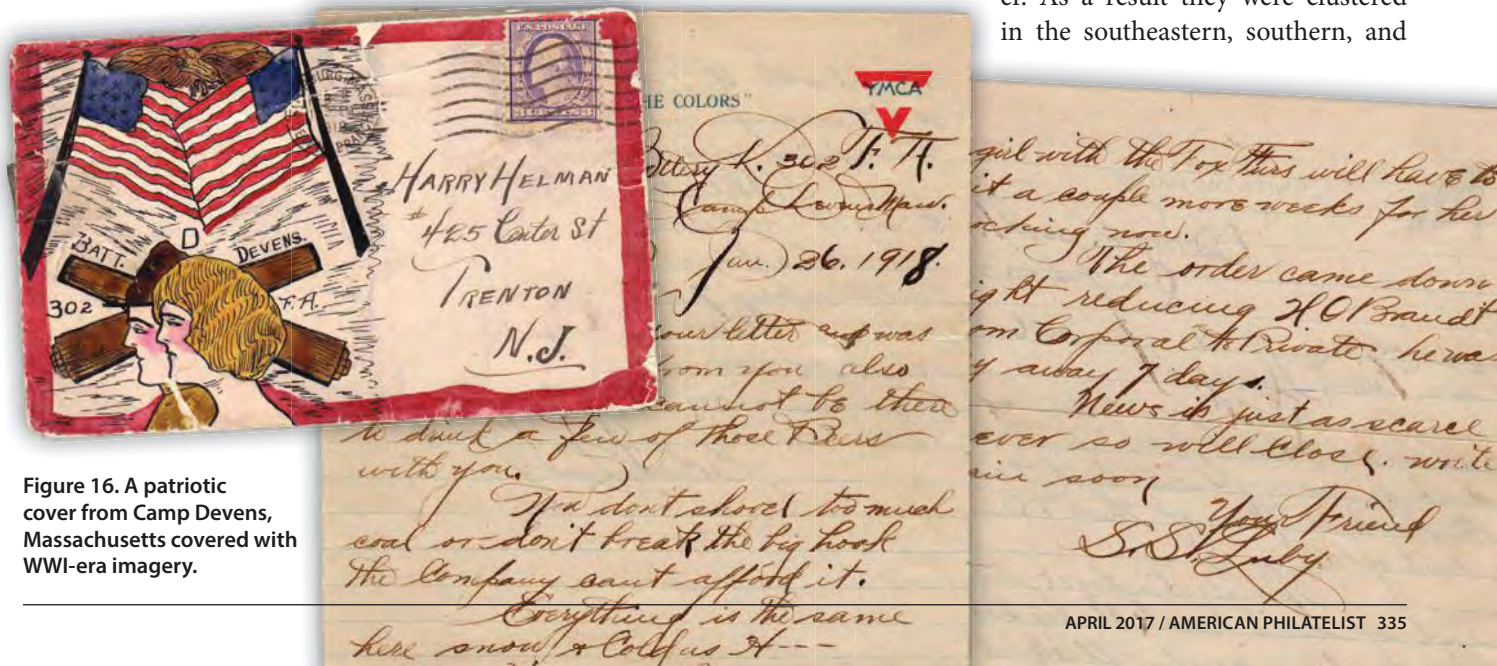 er. As a result they were clustered
in the southeastern, southern, and
U.S. POSTAGE
BATT. D DEVENS.
302 F.A.
HARRY HELMAN
#425 Carter St
TRENTON
N.J.
HE COLORS"
YMCA
302 F. A.
Camp
Jan. 26. 1918.
our letter was
rom you also
cannot be there
to drink a few of those Beers
with you.
Now dont shovel too much
coal or don't break the big hook
the Company cant afford it.
Everything is the same
here snow & Cold as H---
girl with the Fox Furs will have to
it a couple more weeks for her
ocking now.
The order came down
ight reducing H O Brandt
om Corporal to Private he was
y away 7 days.
News is just as scarce
ever so will close. write
ain soon
Your Friend
S.S. Luby
Figure 16. A patriotic
cover from Camp Devens,
Massachusetts covered with
WWI-era imagery.
APRIL 2017 / AMERICAN PHILATELIST 335